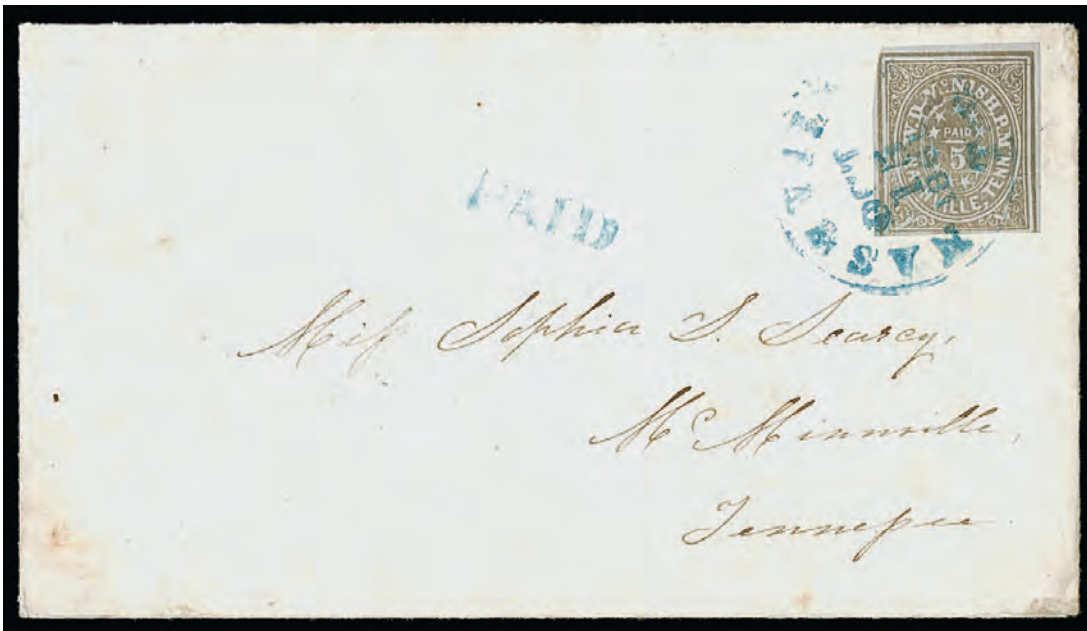 W.D. McNISH. P.M.
PAID
5
NASHVILLE, TENN.
NASHVILLE
PAID
Miſs Sophia S. Searcy,
McMinnville,
Tenneſsee